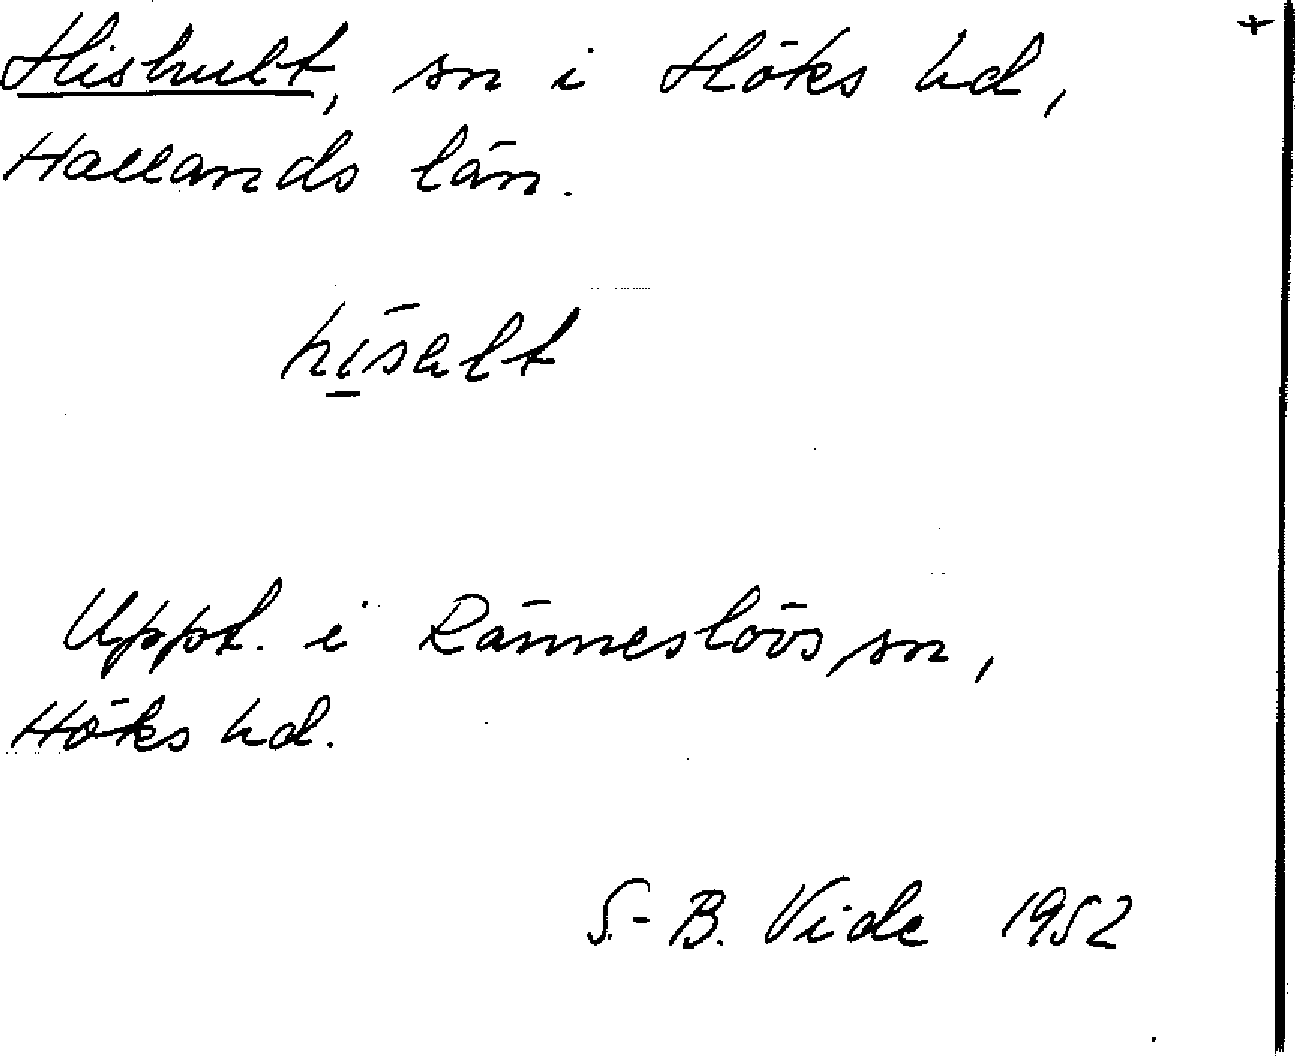 +
Hishult, sn i Höks hd,
Hallands län.
Uppt. i Ränneslövs sn,
Höks hd.
S.-B. Vide 1952